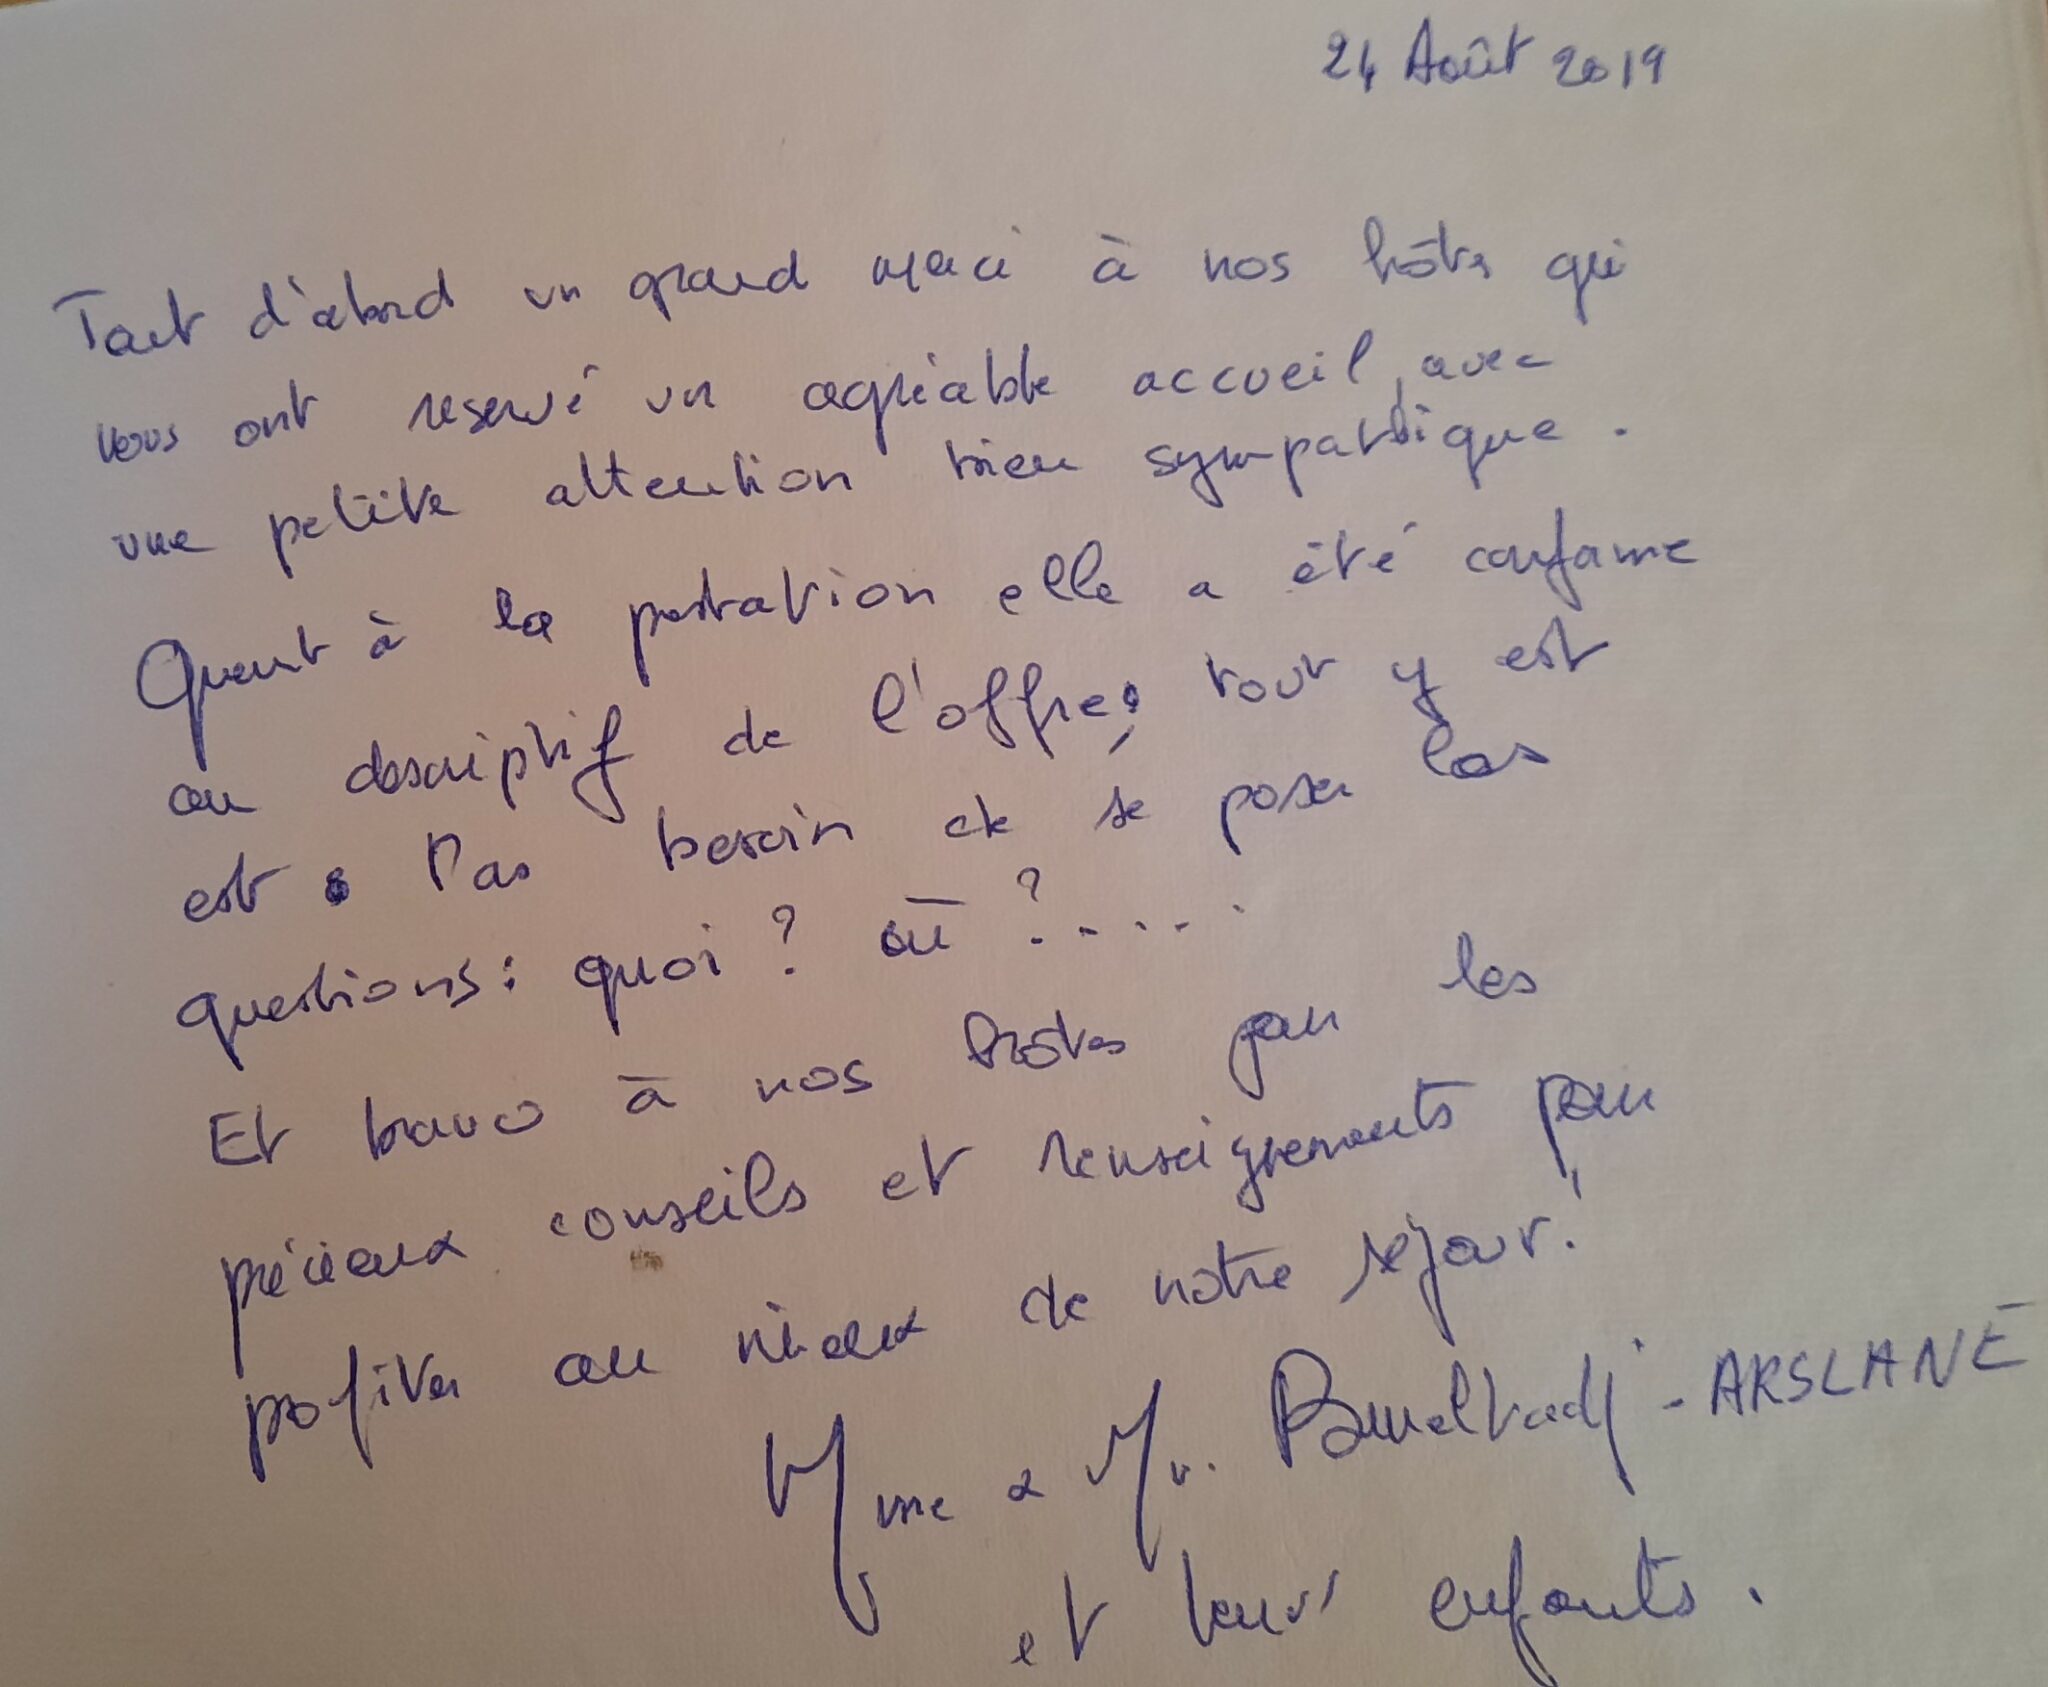 24 Août 2019
Tout d'abord un grand merci à nos hôtes qui
nous ont réservé un agréable accueil, avec
une petite attention bien sympathique.
Quant à la prestation elle a été conforme
au descriptif de l'offre, tout y est
est. Pas besoin de se poser les
questions : quoi ? où ?.....
Et bravo à nos hôtes pour les
précieux conseils et renseignements pour
profiter au mieux de notre séjour !
Mme & Mr. - ARSLANE
et leurs enfants.